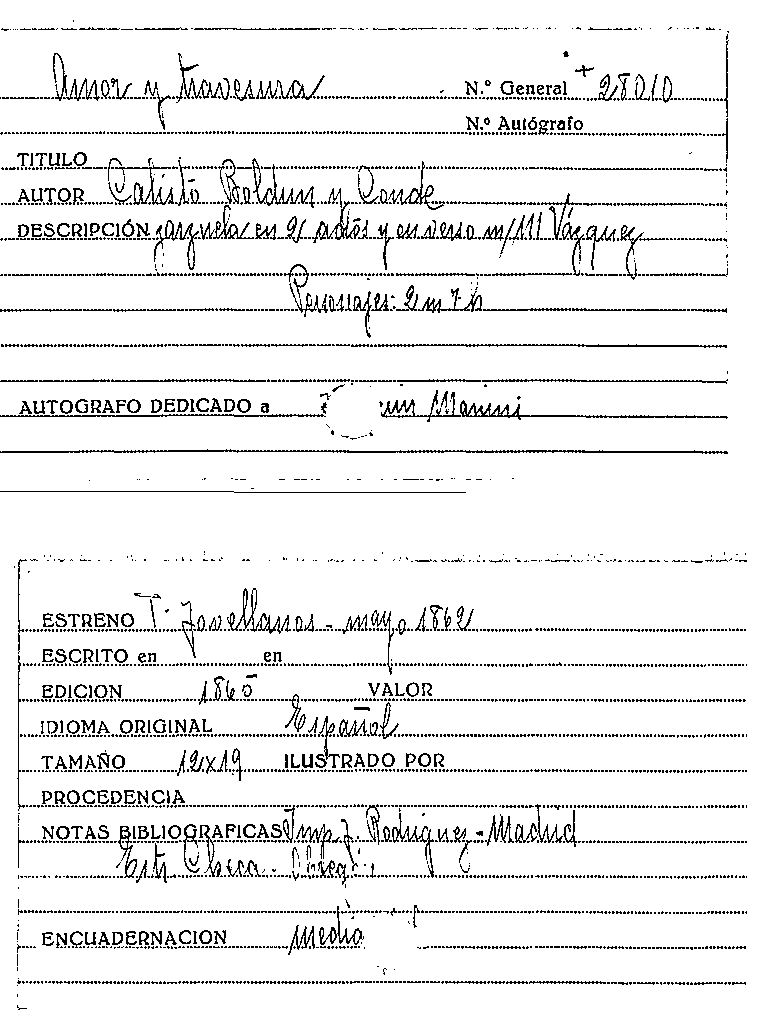 Amor y travesura N.º General + 28010
N.º Autógrafo
TITULO
AUTOR Calisto Boldun y Conde
DESCRIPCIÓN zarzuela en 2 actos y en verso m/ M Vázquez
Personajes: 2 m 7 h
AUTOGRAFO DEDICADO a Manini
ESTRENO T. Jovellanos - mayo 1862
ESCRITO en en
EDICION 1865 VALOR
IDIOMA ORIGINAL Español
TAMAÑO 12x19 ILUSTRADO POR
PROCEDENCIA
NOTAS BIBLIOGRAFICAS Imp. J. Rodriguez - Madrid
Estr. Checa.
ENCUADERNACION Media